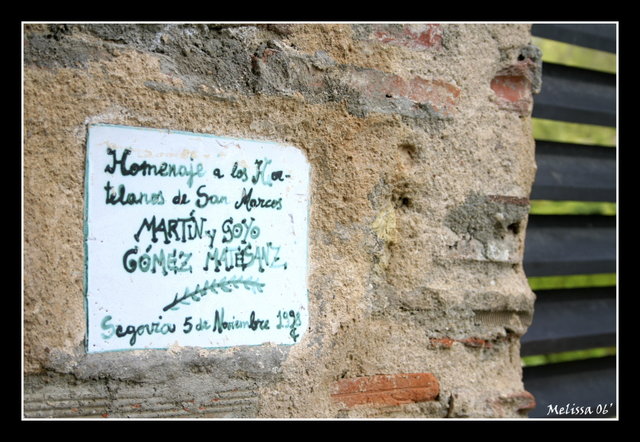 Homenaje a los Hor-
telanos de San Marcos
MARTÍN y GOYO
GÓMEZ MATESANZ.
Segovia 5 de Noviembre
Melissa 06'